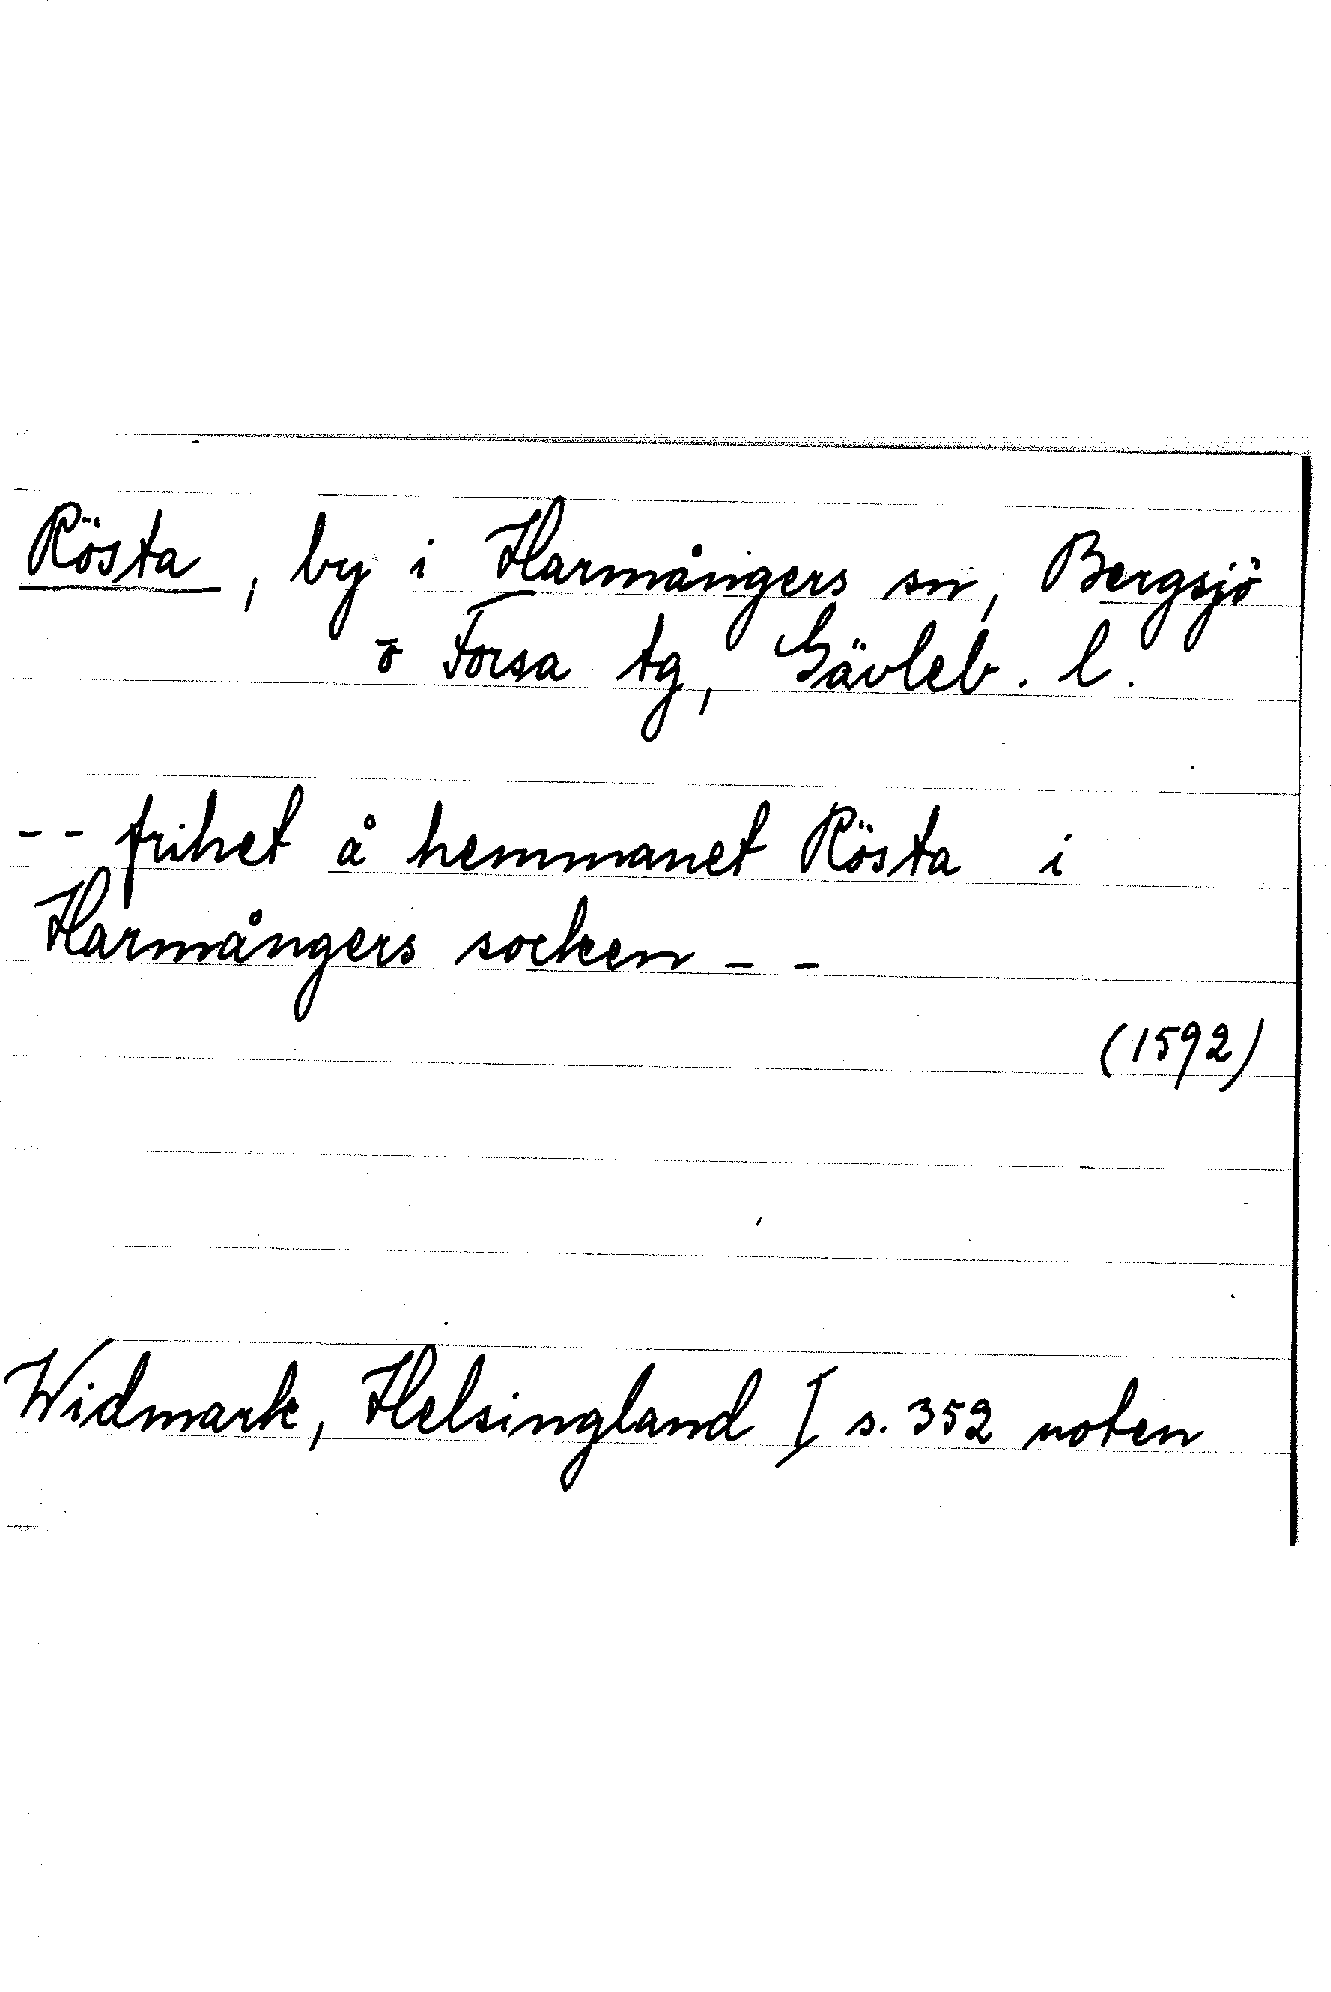 Rösta, by i Harmångers sn, Bergsjö
o Forsa tg, Gävleb. l.
-- frihet å hemmanet Rösta i
Harmångers socken --
(1592)
Widmark, Helsingland I s. 352 noten